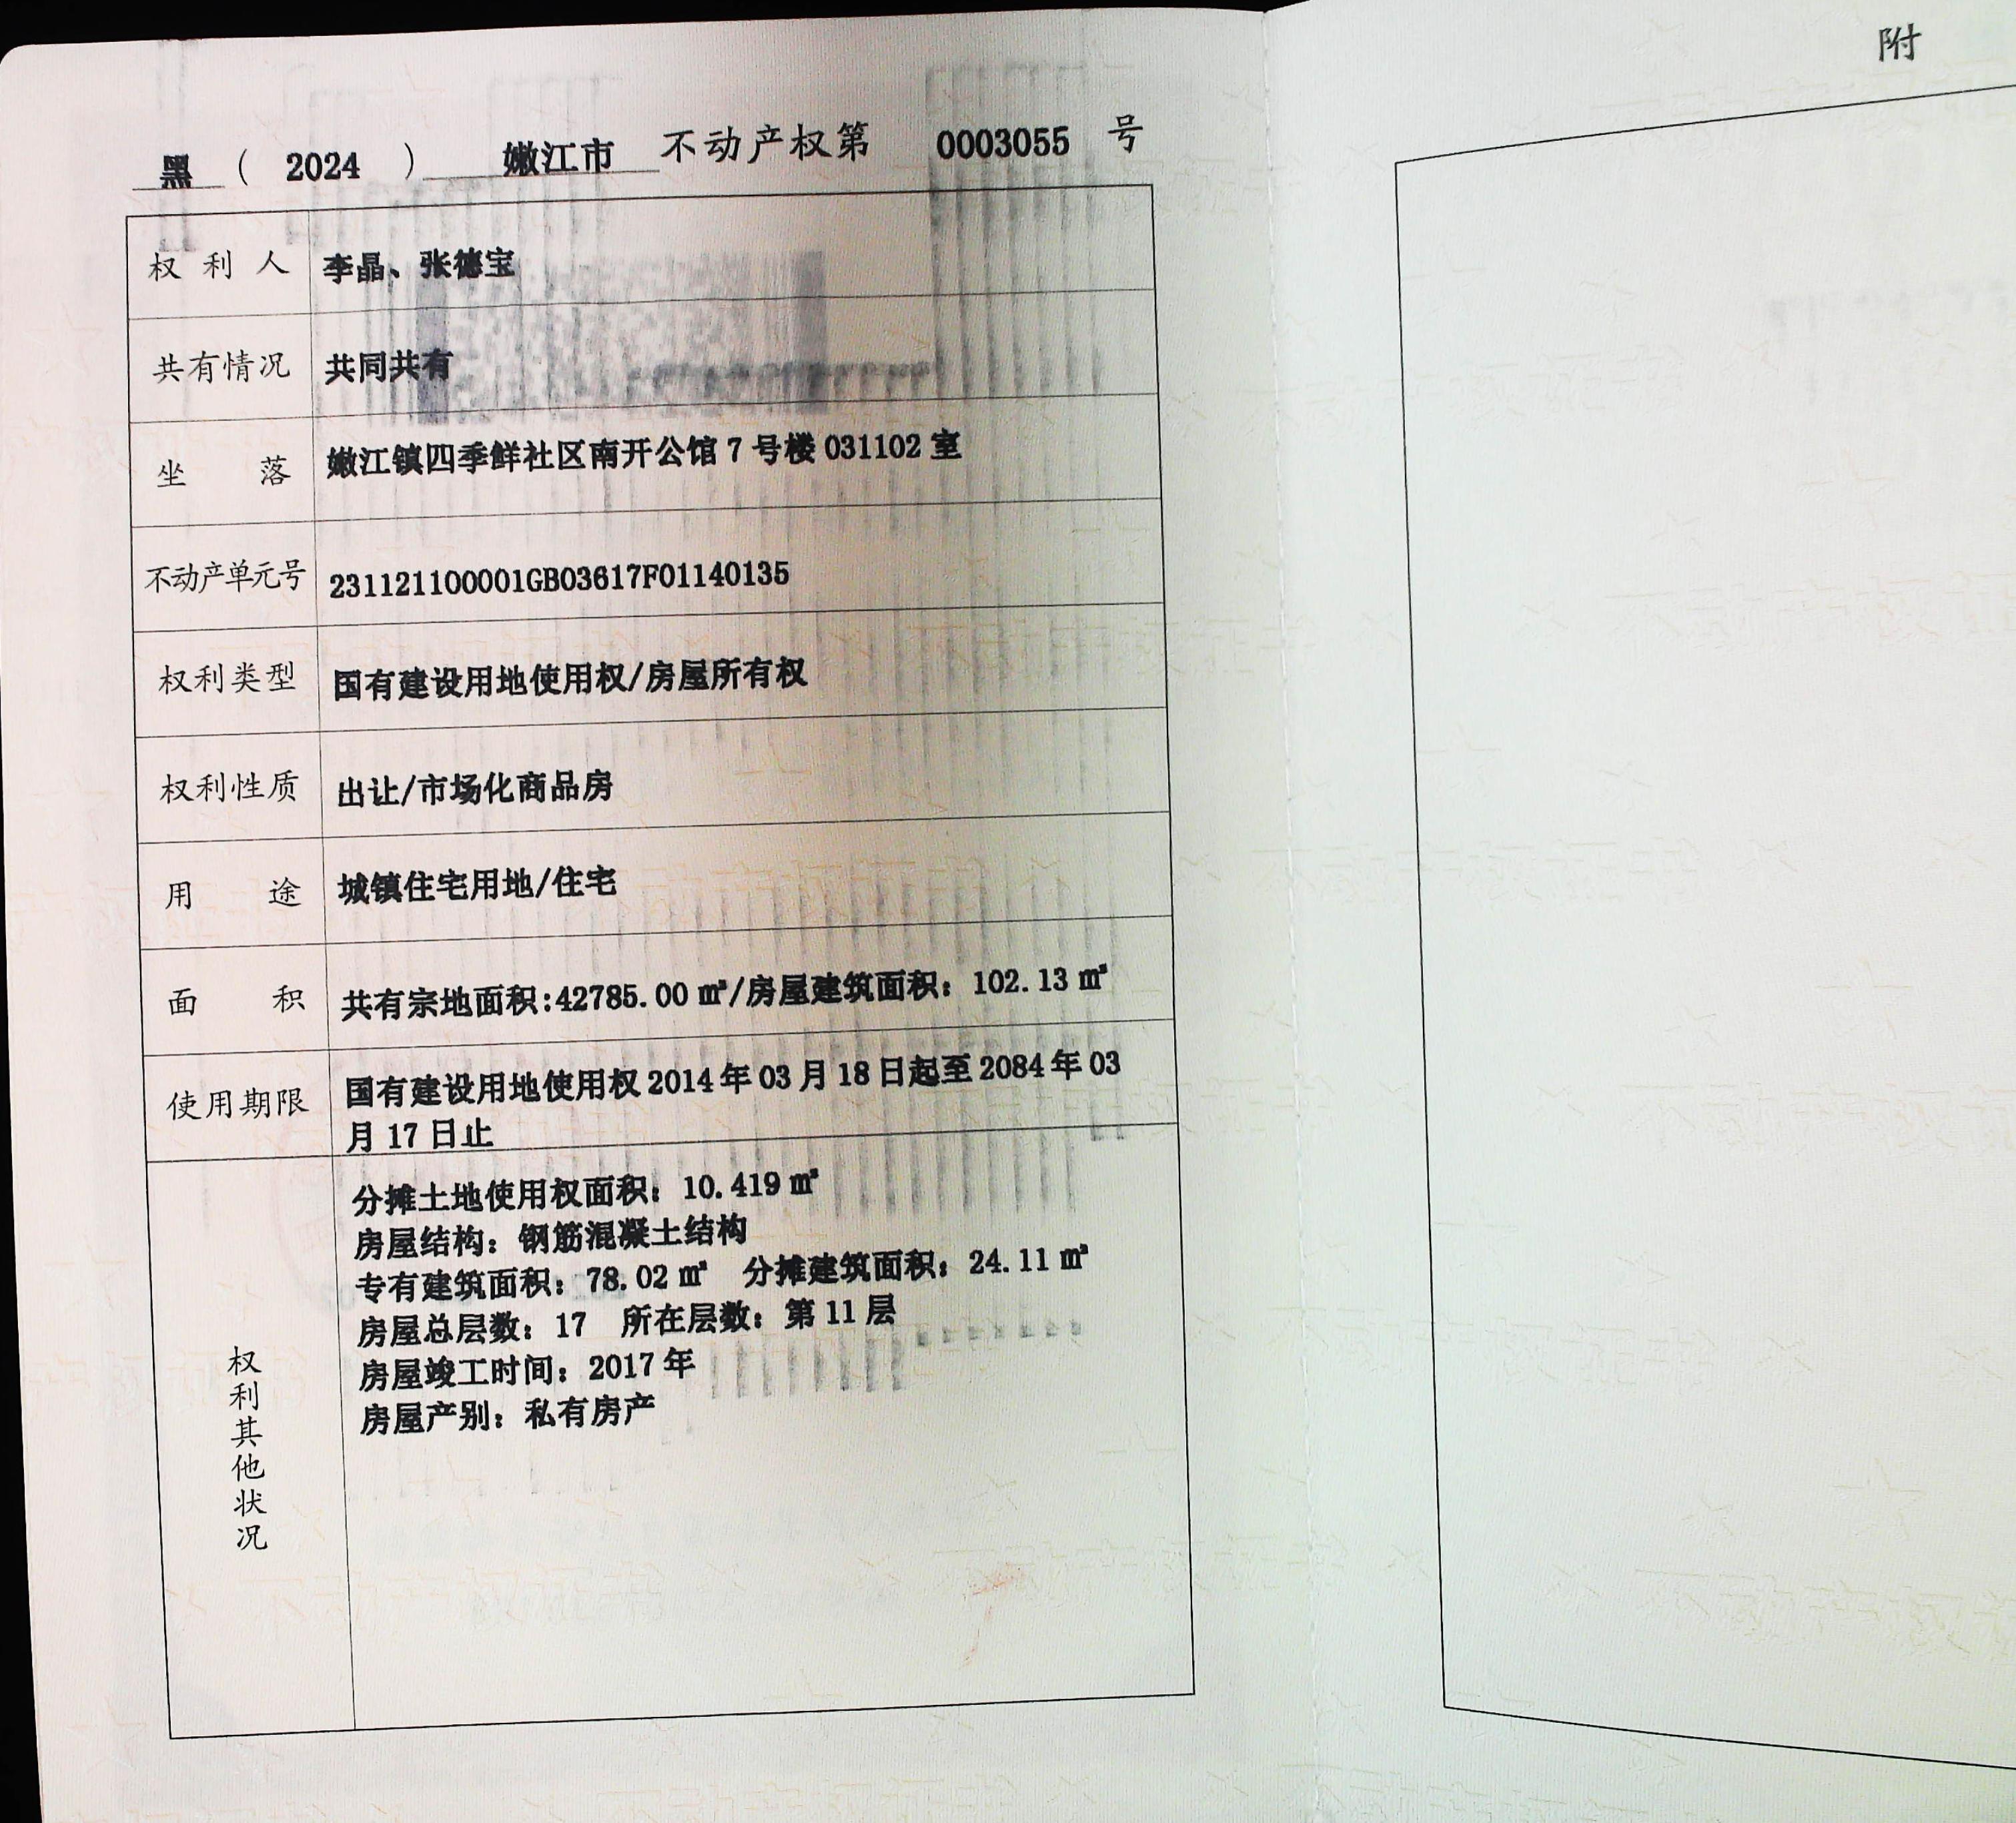 黑（2024）嫩江市不动产权第0003055号
权利人 李晶、张德宝
共有情况 共同共有
坐落 嫩江镇四季鲜社区南开公馆7号楼031102室
不动产单元号 231121100001GB03617F01140135
权利类型 国有建设用地使用权/房屋所有权
权利性质 出让/市场化商品房
用途 城镇住宅用地/住宅
面积 共有宗地面积:42785.00㎡/房屋建筑面积：102.13㎡
使用期限 国有建设用地使用权2014年03月18日起至2084年03
月17日止
权利其他状况
分摊土地使用权面积：10.419㎡
房屋结构：钢筋混凝土结构
专有建筑面积：78.02㎡ 分摊建筑面积：24.11㎡
房屋总层数：17 所在层数：第11层
房屋竣工时间：2017年
房屋产别：私有房产
附